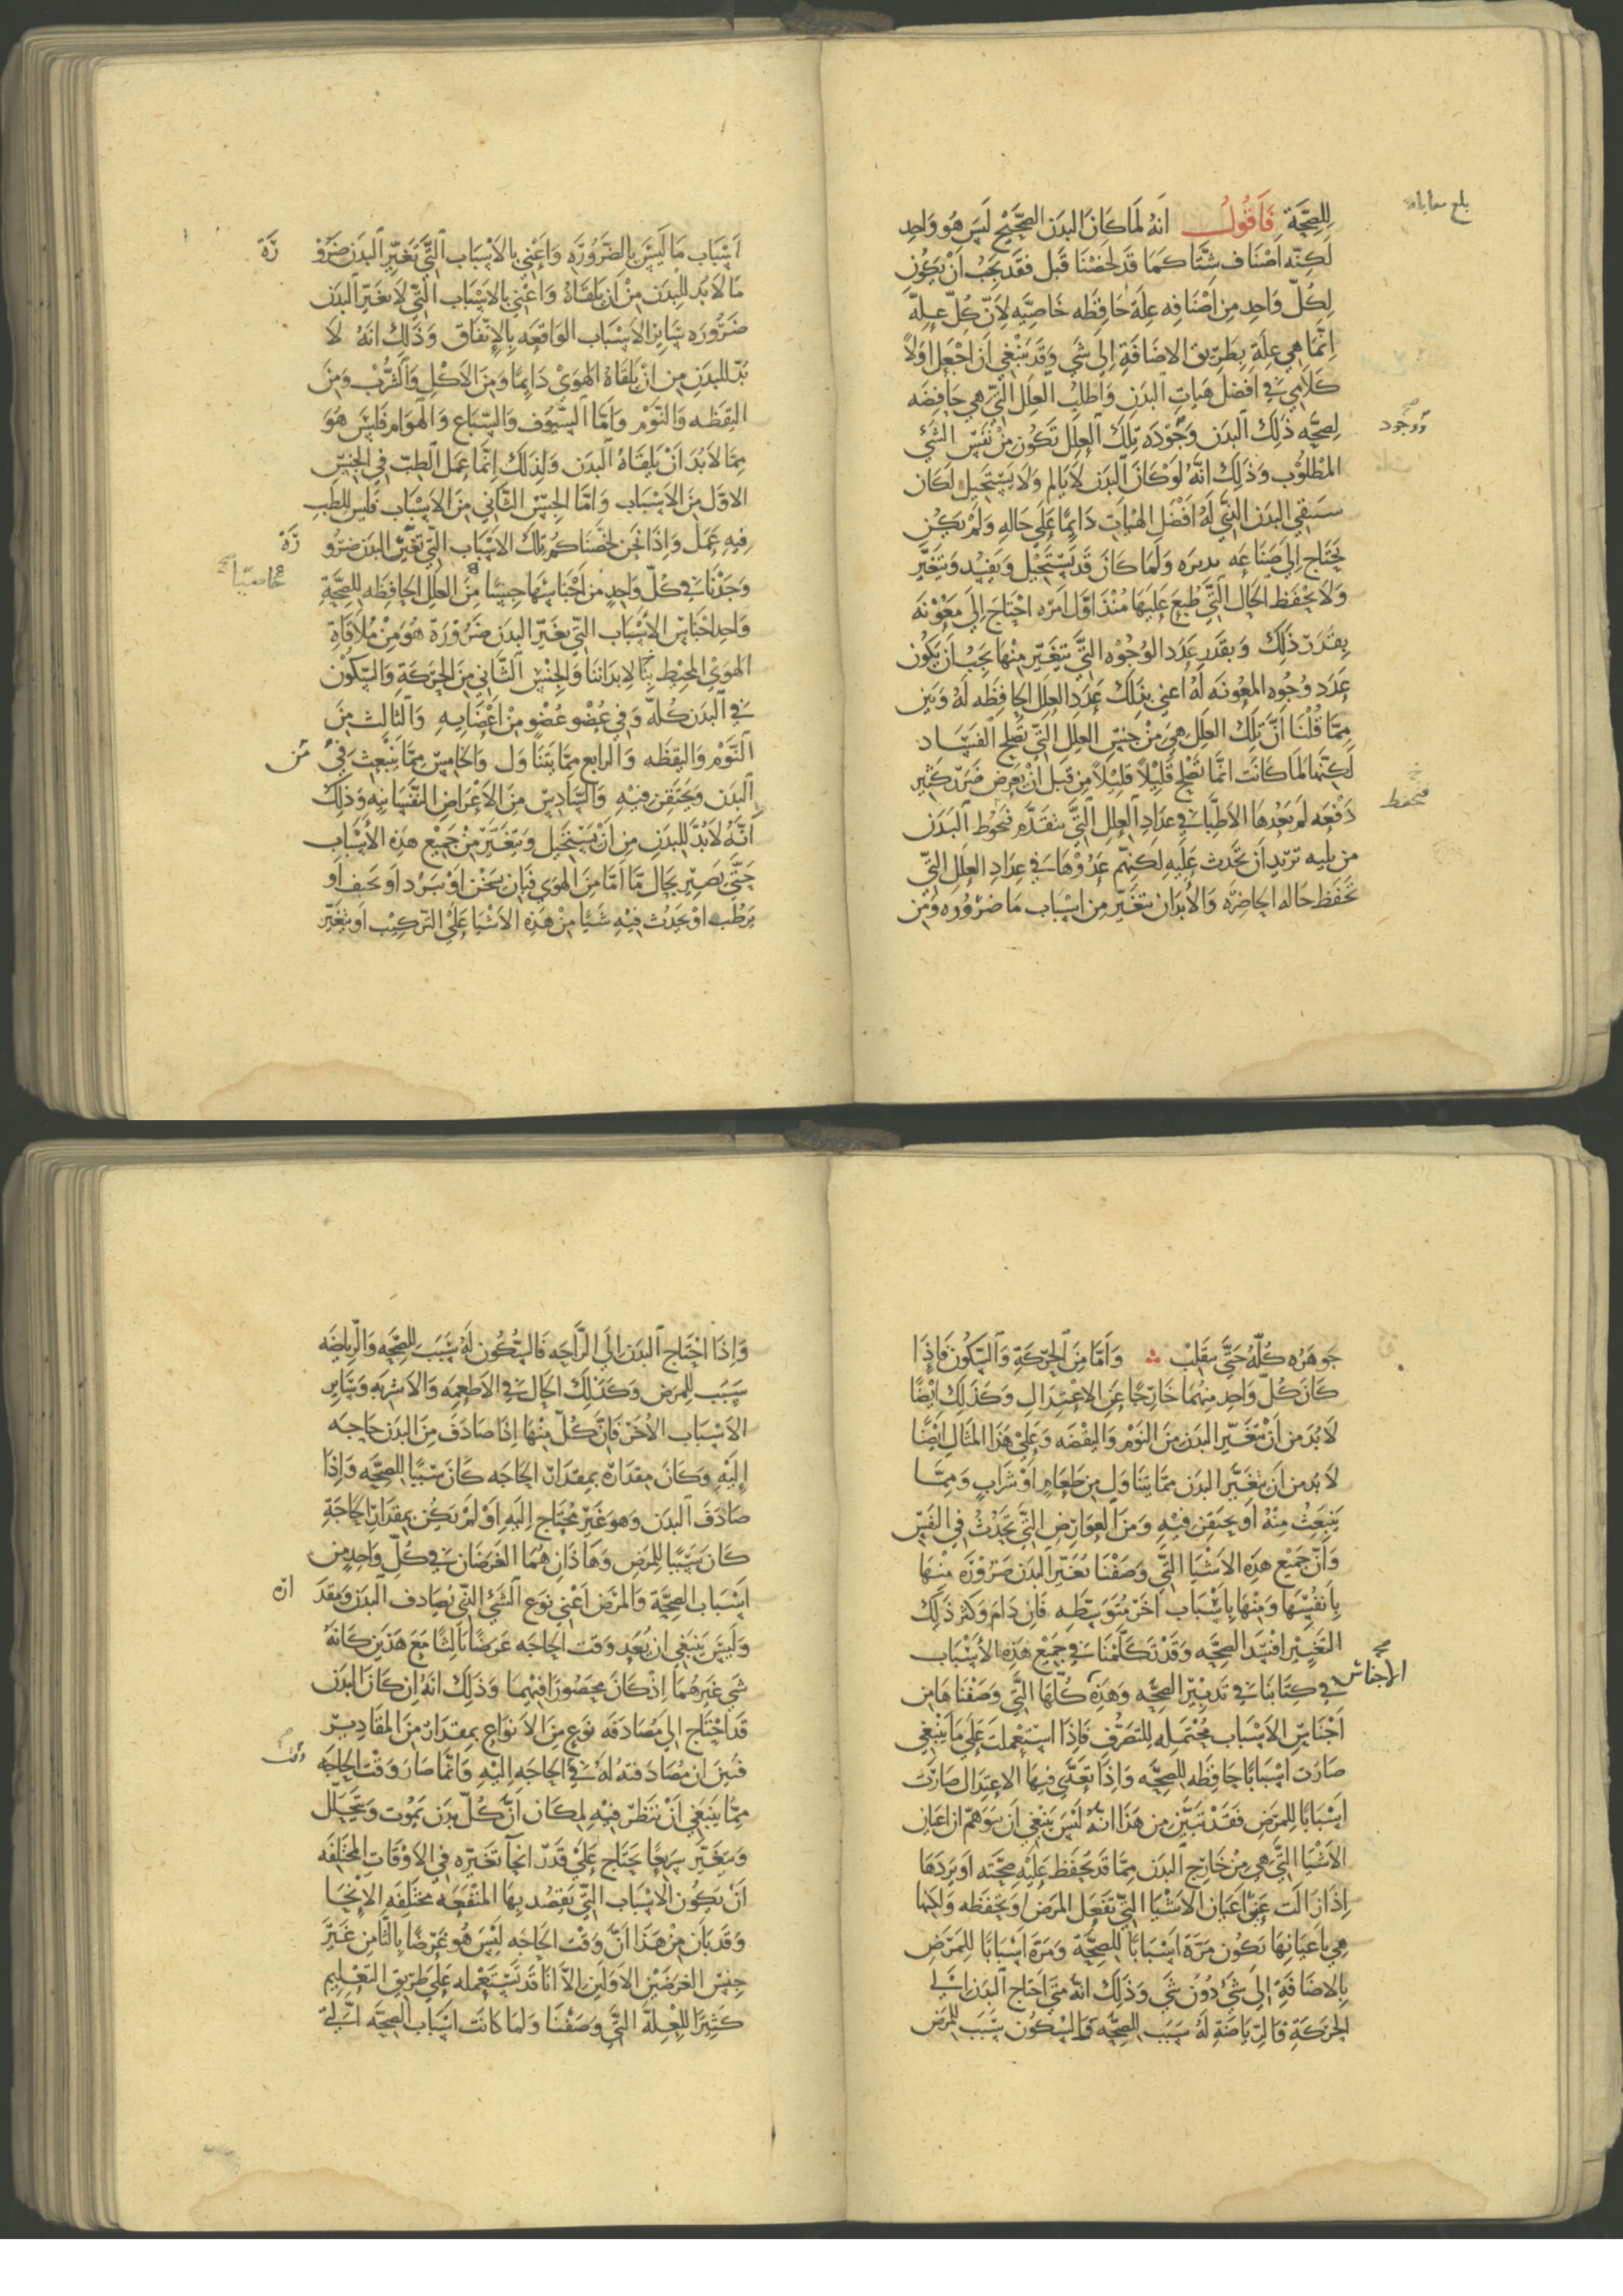 بلغ مقابلة
للصحّة فَأقُولُ انهُ لَما كَانَ البدَن الصّحَيْح لَيسَ هُو وَاحِد
لَكِنّه اَصْنَاف شتَّا كمَا قدَ لخصْنَا قَبل فقدَ يجَبُ اَنْ يَكوُن
لِكُلّ وَاحِد مِن اَصْنَافِه عِلَة حَافِظَه خَاصِيَّه لِاَنّ كُلّ عِلّه
اِنّما هِي عِلَةٍ بِطَرِيق الاضَافَةِ اِلي شَي وَقَد يَنْبَغي اَن اجْعَل اَوّلاً
كلَامِي فِي افضَل هَياتِ البَدَن وَاطلبُ العِلَل الّتي هِي حَافِضَه
لِصِحَّه ذلِك البَدَن وَجُودَه تلِكَ العِلَل تكوُن مِنْ نَفسِ الشَّئ
صح وَوجُود
المطْلوُب وَذلِكَ انّهُ لَوْ كَانَ البَدَن لَا يَالم وَلَا يسْتَحيل لكَان
سيَبقي البَدَن الذّي لَهُ افْضَل الهيْاتِ دَايمًا عَلي حَالهِ وَلَمْ يَكُن
يَحَتاج اِلي صَنَاعَه تدبرَه وَلَمَا كَانَ قَد يَسْتَحيْل وَيَفسُد وَيَتغَيَّر
وَلَا يَحْفَظ الحَال التَّي طُبِعَ عَليهَا مُنْذ اَوّل اَمرّه احْتاجَ اِلي مَعُوْنَه
بِقَدَر ذلِكَ وَبقَدَر عَدَد الوُجُوْه التَّي يَتغيّر منْهَا يجَبُ اَن يَكُون
عَدَد وُجُوهِ المعُونَه لَهُ اعني بذَلِكَ عَدَدِ العِلَل الحَافِظَه لَهُ وَبَيّن
مِمَّا قُلنَا اَنَّ تِلك العِلَل هِيَ مِنْ جنِس العِلَل التّي تصْلح الفَسَاد
لكِنّها لَما كَانَت انمَّا تُصْلح قَلِيْلاً قَلِيْلاً مِن قَبلِ انْ يعَرِض ضَرَر كَثيْر
دَفْعَه لَم يَعُدهَا الاَطِبَّا فِي عدَادِ العِلَل التَّي تتقدّم فتَحُوط البَدَن
فتحفظ
من بليه تريدِ اَن تَحْدث عَليهِ لكِنهّم عَدّوْهَا فِي عِدَادِ العِلَل التّي
تحَفَظ حَاله الحَاضِرَه وَالأبدَان تتغَيّر مِن اسْبَاب مَا ضَرُورَه وَمِن
اَسْبَاب مَا لَيسَ بِالضَرُورَة وَاعَني بالاَسْبَاب الّتي تَغيِّر البَدَن ضَرُوْ رَة
مَا لَا بُد للبدَن مِنْ اَن يلقاهُ وَاعْني بالاسْبَاب الّتي لَا تغيّر البَدَن
ضَرُورَه سَاير الاَسْبَاب الوَاقِعَه بِالاِتّفَاق وَذلِكَ انَهُ لَا
بُدّ للبدَن مِن اَنْ يَلْقَاهُ الهَوَي دَايِمًا وَمِنَ الاكْلِ وَالشُّرْب وَمِنَ
اليَقظَه وَالنّوْم وَامّا السّيوُف وَالسِّبَاع وَالهَوَام فلَيسَ هُوَ
مِمّا لَا بُدَ اَنْ يَلقَاهُ البَدَن وَلِذلِكَ اِنّما عَمل الطبّ فِي الجنِس
الاوّل مِنَ الاَسْبَاب وَامّا الجِنس الثّاني مِنَ الاسْبَاب فَليس للطبِ
فِيهِ عَمَلْ وَاِذَا نَحَن لخصَّنَا كُم تِلكَ الاسْبَاب التّي تُغَيّر البَدَن ضرُو رَة
وَجَدْنَا فِي كُلّ وَاحِدٍ مِن اجْنَاسِهَا جِنسًا مِنَ العِلَل الحَافِظَه للصِّحَّةِ
خاصيّا صح
وَاحد اجْنَاس الأسْبَاب التّي تغيّر البَدَن ضَرُوْرَة هُوَ مِنْ مُلَاقَاةِ
الهوَيْ المحيْط بِنَا لِابدَاننَا وَالجِنْس الثّاني مِنَ الحَرَكَةِ وَالسّكُوْن
فِي البَدَن كُلهِّ وَفِي عُضْو عُضْوٍ مِنْ اعْضَايِهِ وَالثّالِث مِنَ
النّوْم وَاليَقظَه وَالرابَع مِمَّا يتَنَاوَل وَالخامِسْ مِمَّا يَنْبعث فِيْ مِن
البَدَن وَيَحتَقِن فِيْهِ وَالسّادِسْ مِنَ الاَعْرَاضِ النّفسَانيِه وَذلِكَ
انّهُ لَا بُدَّ لِلبدَن مِن اَنْ يَسْتَحَيل وَيَتغَيَّر مِنْ جَميْع هَذِه الأسْبَاب
حَتّي يَصيْر بحَال مّا اَمّا مِنَ الهوَي فَبِان يسْخَن اَوْ يَبرُد اَو يَجف اَو
يَرْطُب اوْ يَحدُث فِيْهِ شَيًا مِنْ هَذِه الاشْيَا عَلَيْ التّركِيْب اَو يَتغَيّر
جَوهَرُه كُلّهُ حَتّي يَنقَلِبْ وَاَمّا مِنَ الحَرَكَةِ وَالسّكُوْن فَاِذَا
كَانَ كُلّ وَاحِد مِنهُمَا خَارِجًا عَنِ الاِعْتِدَالِ وَكَذَلِكَ ايْضًا
لَا بُدَ من اَنْ يَتغَيّر البَدَن مِنَ النَوْم وَاليقْضَه وَعَلي هَذا المثَالِ ايْضًا
لَا بُد من اَن يَتغَيَّر البَدَن ممَّا يَتنَاوَل مِن طَعَام اَوْ شَرَاب وَمِمّا
يَنبَعِثُ مِنْهُ اَو يحَتَقِن فِيْهِ وَمِنَ العَوَارِض التَّي تحَدُثْ فِي النَفْس
وَانّ جَمِيْع هَذِه الاشْيَا التَّي وَصَفْنَا تُغَيّر البَدَن ضَرُوْرَه مِنْهَا
بِاَنفُسِهَا وَمِنْهَا بِاسْبَاب اخَر مُتَوَسِّطَه فَاِن دَامَ وَكثر ذَلِكَ
التغَييْر افسَد الصِحَّه وَقَدْ تكَلّمْنَا فِي جَميْع هَذِهِ الأسْبَاب
الاجناس صح
فِي كِتَابنَا فِي تَدبيْر الصِحَّه وَهَذِهِ كُلّهَا التَّي وَصَفْنَا هَا مِن
اَجْنَاس الاَسْبَاب مُحْتَمِلَه لِلتصَرّف فَاِذَا اسْتُعْمِلتَ عَلي مَا ينْبَغِي
صَارَت اسْبَابًا حَافِظَه للصِحَّه وَاذَا تُعُدّي فيهَا الاعتِدَال صَارَت
اَسْبَابًا لِلمرَضِ فقَدْ تَبَيّن مِن هَذا انّهُ لَيْسَ يَنبغي اَن يتَوَهمّ ان اعَيان
الاشْيَا التَّي هِي مِنْ خَارِج البَدَن مِمّا قدَ يُحفَظ عَليْهِ صِحّته اَو يَردّهَا
اِذَا زالَت عَنْهُ غيْر اَعيَان الاشْيَا التّي تفعَل المرَض وَتحفَظه وَلكِنّها
هِي باَعيَانِهَا تكُون مَرّة اسْبَابًا لِلصّحَّةِ وَمَرّة اَسْبَابًا لِلمَرَضِ
بِالاضَافَةِ اِلي شَئٍ دُوْن شَيْ وَذَلِكَ انّهُ مَتي احتَاج البَدَن اِلي
الحَرَكَةِ فَالرِّيَاضَةِ لَهُ سَبَب للصِّحَّه وَالسكُون سَبَب لِلمرَض
وَاِذَا احْتَاج البَدَن اِلَي الرَّاحَه فَالسُّكُون لَهُ سَبَب للصّحَّه وَالرّياضَه
سَبَب للِمرَض وَكذلِكَ الحَال فِي الاَطعِمَه وَالاَشرِبَهِ وَسَايِر
الاَسْبَاب الاُخَرْ فَاِنَّ كُلّ مِنْهَا اِذَا صَادَفَ مِنَ البَدَن حَاجَه
اِلَيْهِ وَكَانَ مِقدَارَه بِمِقدَار الحَاجَه كَانَ سَبَبًا للصِحَّه وَاِذَا
صَادَفَ البَدَن وَهوَ غَيْر مُحْتَاج اِلَيهِ اَوْ لَمْ يكَُن بمقدَار الحَاجَةِ
كَانَ سَبَبًا لِلمرَضِ وَهَا ذَان هُمَا الغَرَضَان فِي كُلّ وَاحِدٍ مِن
اسْبَاب الصِحَّة وَالمرَض اَعْني نوَع الشَّئ الذّي يُصَادِف البَدَن وَمِقدَ ارَه
وَلَيسَ يَنبَغي ان يُعَد وَقت الحَاجَه غَرَضًا ثَالِثًا مَعَ هَذَين كَانّهُ
شَي غَيرهُمَا اِذْ كَانَ مَحْصُورًا فِيْهِما وَذَلِكَ انّهُ اِن كَانَ البَدَن
قَد احْتَاج الي مُصَادَفَه نوَع مِنَ الاَنوَاع بِمِقدَار مِنَ المقَادِيْر
فَبَيّن ان مُصَادَفتهُ لهُ فِي الحَاجَه اِليْهِ وَانمَّا صَارَ وَقْتُ الحَاجَه
وقت
مِمّا يَنْبَغي اَنْ نَنظَرّ فِيْهِ لمكَان اَنَّ كُلّ بَدَن يَموُت وَيتَحَلّل
وَيتغَيَّر سَريعًا يَحتَاج عَليْ قَدَر انحَا تغيّره فِي الاوْقَات المخْتَلِفَه
اَنْ يَكُون الاسْبَاب التّي يَقصُد بِهَا المنفَعَه مختَلِفَه الاِنحَا
وَقَد بَان مِنْ هَذَا انَّ وَقْت الحَاجَه لَيْسَ هُو غَرَضًا ثالثا من غَيْر
جِنِس الغَرضَيْن الاوَلين اِلاَّ انَّا قَد نَسْتَعْمله عَلي طرَيق التعْلِيم
كَثِيرًا للِعِلّةَ التَّي وَصَفْنَا وَلَمَا كَانَت اسْبَاب الصحّه التّي